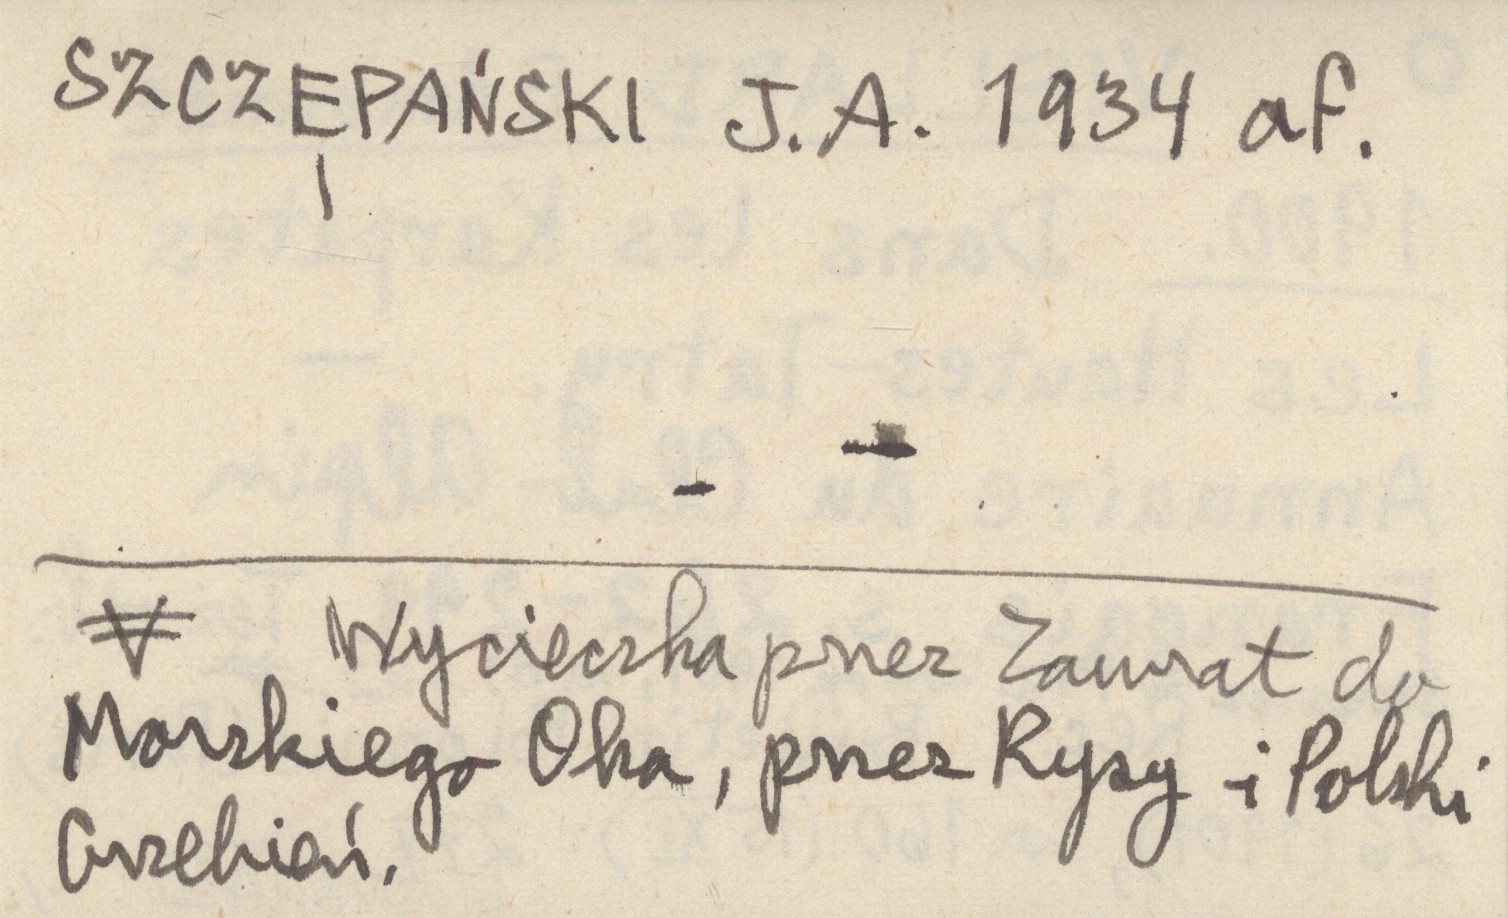 SZCZEPAŃSKI J.A. 1934 af.
Wycieczka przez Zawrat do
Morskiego Oka, przez Rysy i Polski
Grzebień.